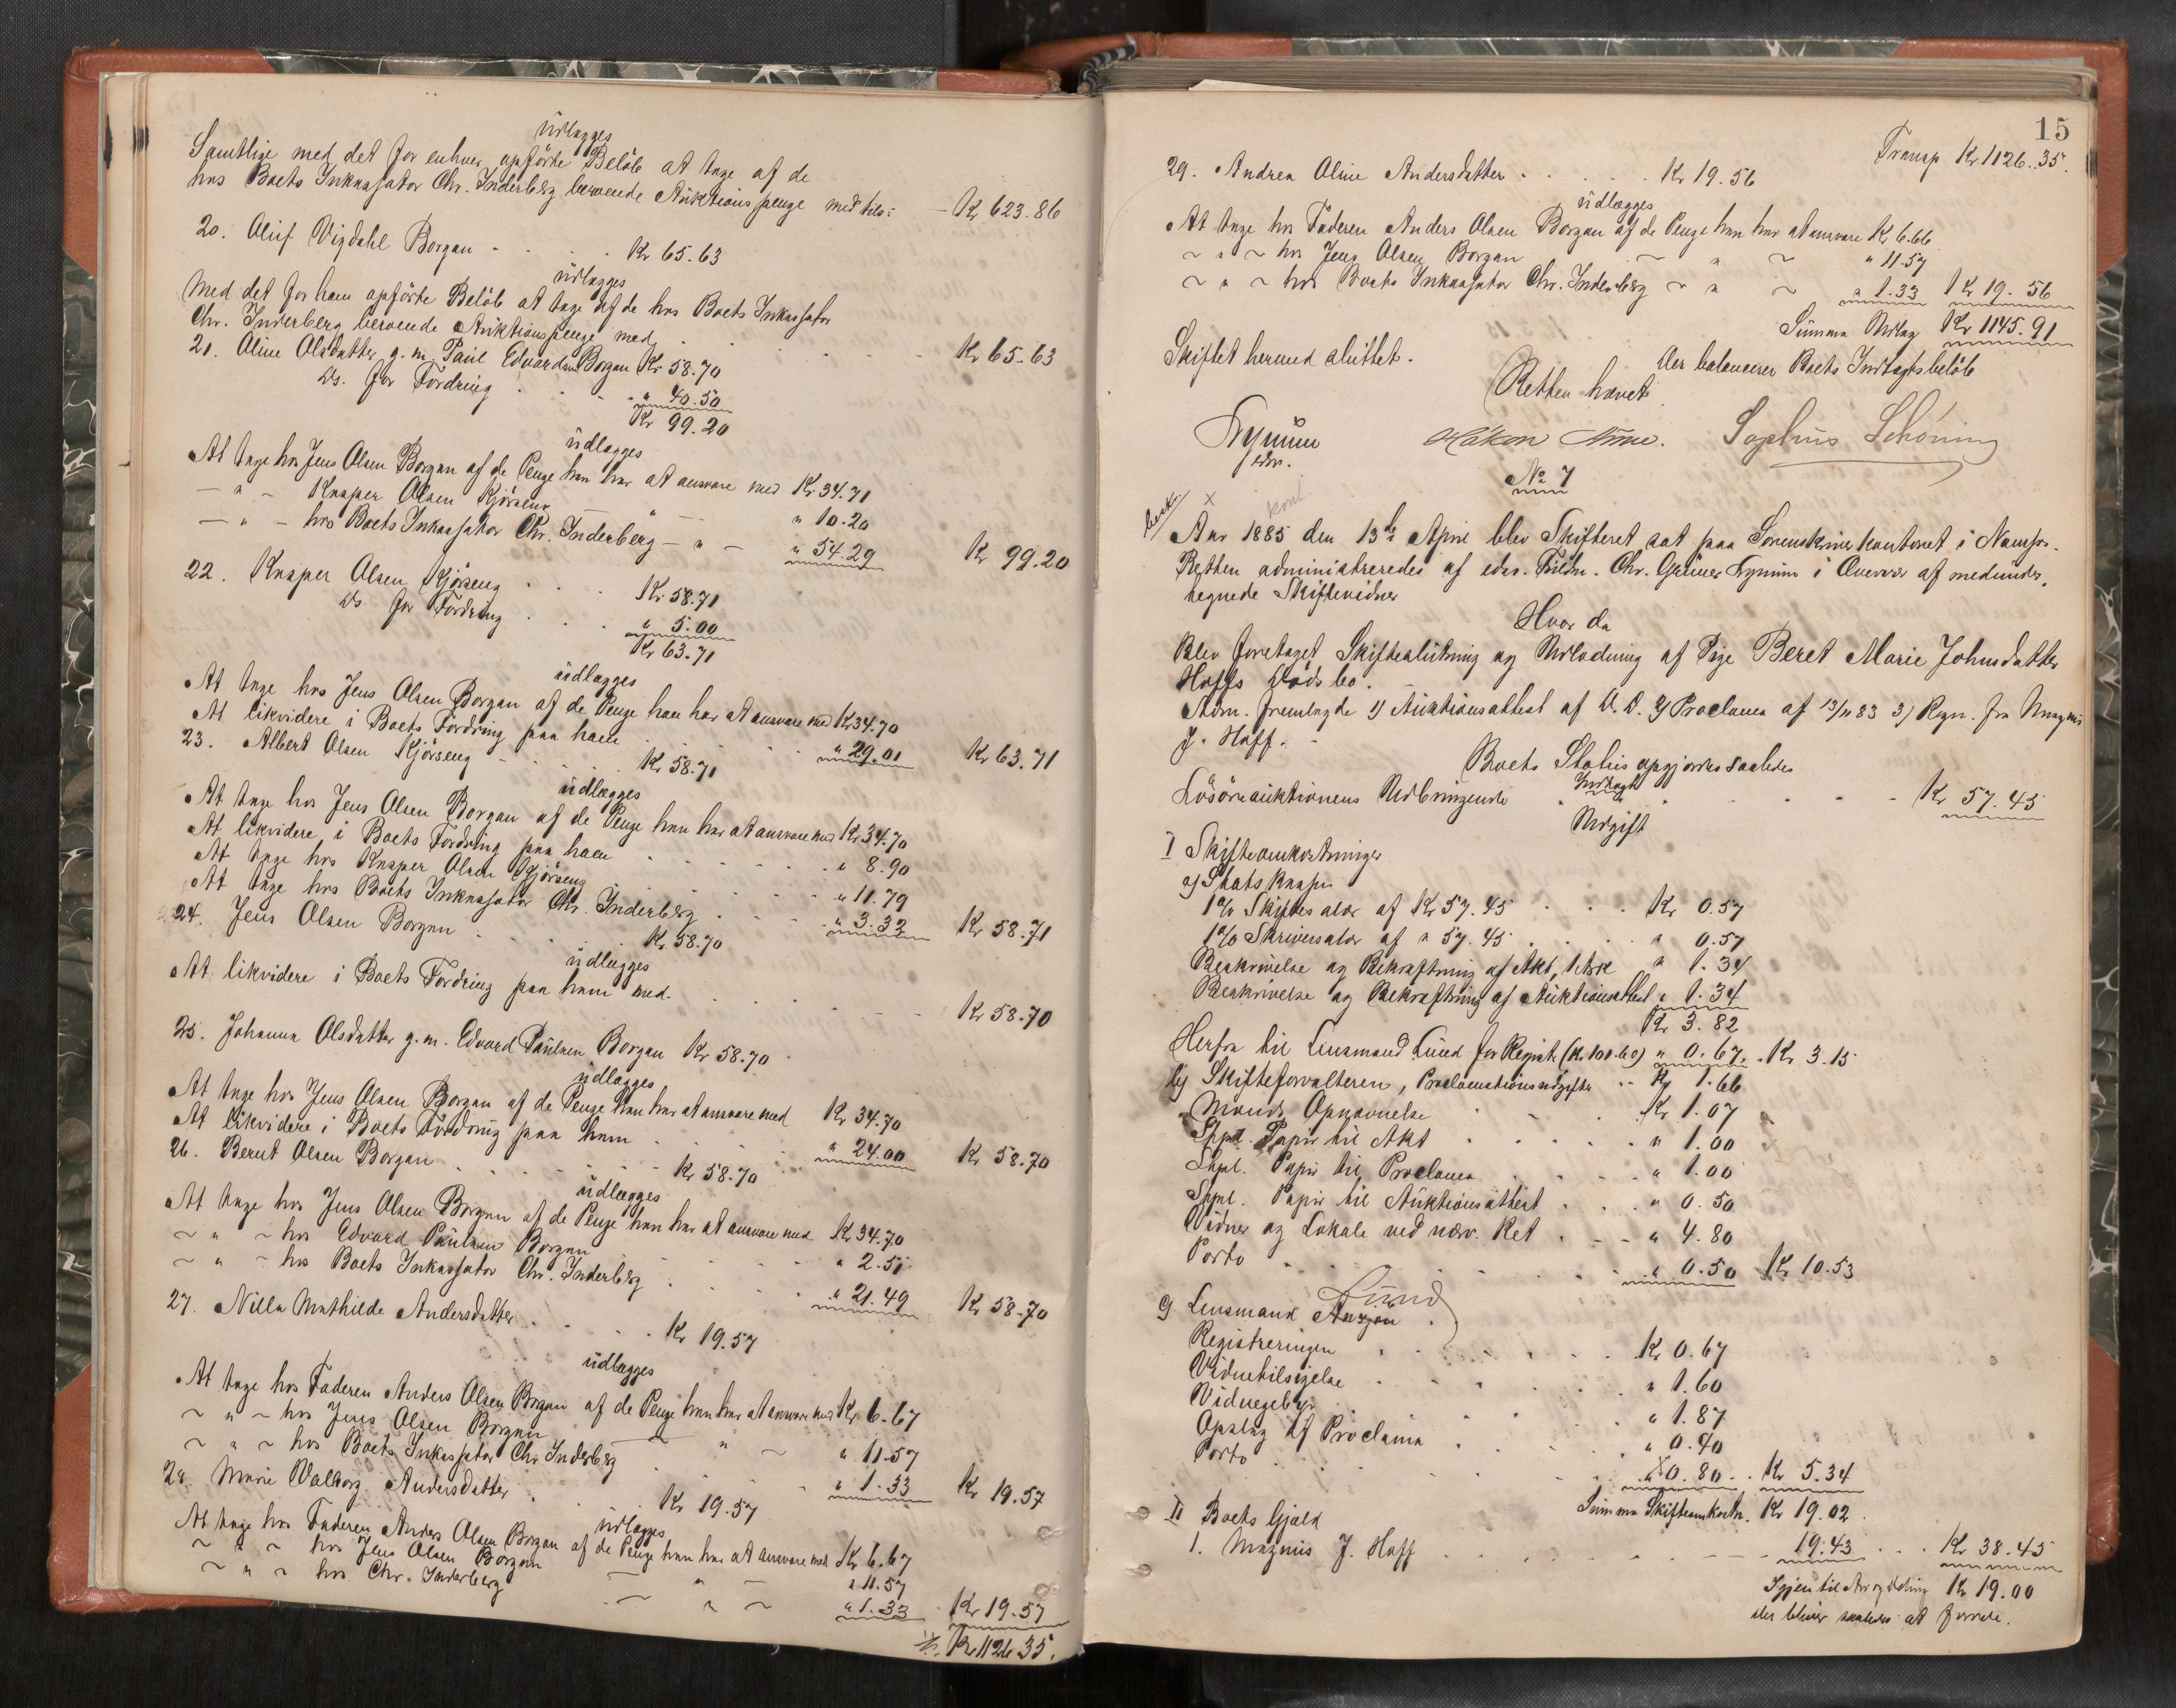 udlægges
Samtlige med det for enhver opförte Belöb at tage af de
hos Boets Inkassator Chr. Inderberg beroende Auktionspenge med tils: — Kr 623.86
20. Oluf Vigdahl Borgan Kr 65.63
udlægges
med det for ham opförte Belöb at tage af de hos Boets Inkassator
Chr. Inderberg beroende Auktionspenge med Kr 65.63
21. Oline Olsdatter g. m. Paul Edvardsen Borgan Kr 58.70
Ds. for Fordring " 40.50
Kr 99.20
udlægges
At tage hos Jens Olsen Borgan af de Penge han har at ansvare med Kr 34.71
— " — Kasper Olsen Kjörseng — " — " 10.20
— " — hos Boets Inkassator Chr. Inderberg — " — " 54.29 Kr 99.20
22. Kasper Olsen Kjörseng Kr 58.71
Ds for Fordring " 5.00
Kr 63.71
udlægges
At tage hos Jens Olsen Borgan af de Penge han har at ansvare med Kr 34.70
At likvidere i Boets Fordring paa ham " 29.01 Kr 63.71
23. Albert Olsen Kjörseng Kr 58.71
udlægges
At tage hos Jens Olsen Borgan af de Penge han har at ansvare med Kr 34.70
At likvidere i Boets Fordring paa ham " 8.90
At tage hos Kasper Olsen Kjörseng " 11.79
At tage hos Boets Inkassator Chr. Inderberg " 3.32 Kr 58.71
24. Jens Olsen Borgan Kr 58.70
udlægges
At likvidere i Boets Fordring paa ham med Kr 58.70
25. Johanna Olsdatter g. m. Edvard Paulsen Borgan Kr 58.70
udlægges
At tage hos Jens Olsen Borgan af de Penge han har at ansvare med Kr 34.70
At likvidere i Boets Fordring paa ham " 24.00 Kr 58.70
26. Bernt Olsen Borgan Kr 58.70
udlægges
At tage hos Jens Olsen Borgan af de Penge han har at ansvare med Kr 34.70
~ " ~ hos Edvard Paulsen Borgan " 2.51
~ " ~ hos Boets Inkassator Chr. Inderberg " 21.49 Kr 58.70
27. Nilla Mathilde Andersdatter Kr 19.57
udlægges
At tage hos Faderen Anders Olsen Borgan af de Penge han har at ansvare med Kr 6.67
~ " ~ hos Jens Olsen Borgan ~ " ~ " 11.57
~ " ~ hos Boets Inkassator Chr Inderberg " 1.33 Kr 19.57
28. Marie Valborg Andersdatter Kr 19.57
udlægges
At tage hos Faderen Anders Olsen Borgan af de Penge han har at ansvare med Kr 6.67
~ " ~ hos Jens Olsen Borgan ~ " ~ " 11.57
~ " ~ hos Chr. Inderberg ~ " ~ " 1.33 Kr 19.57
Kr 1126.35.
15
Transp. Kr 1126.35.
29. Andrea Oline Andersdatter Kr 19.56
udlægges
At tage hos Faderen Anders Olsen Borgan af de Penge han har at ansvare Kr 6.66
~ " ~ hos Jens Olsen Borgan ~ " ~ " 11.57
~ " ~ hos Boets Inkassator Chr. Inderberg ~ " ~ " 1.33 Kr 19.56
Summa Udlæg Kr 1145.91
der balancerer Boets Indtægtsbelöb
Skiftet hermed sluttet.
Retten hævet
Lynum
edsv.
Håkon Sophus Schöning
No 7
besk. x kont
Aar 1885 den 13de April blev Skifteret sat paa Sorenskriverkontoret i Namsos.
Retten administreredes af edsv. Fuldm. Chr. Grüner Lynum i Overvær af medunder-
tegnede Skiftevidner
Hvor da
Blev foretaget Skifteslutning og Udlodning af Pige Beret Marie Johnsdatter
Hoffs Dödsbo.
Adm. fremlagde 1) Auktionsattest af D. D. 2) Proclama af 13/11 83 3) Regn. fra Magnus
J. Hoff.
Boets Status opgjordes saaledes
Indtægt
Lösöreauktionens Udbringende Kr 57.45
Udgift
I Skifteomkostninger
a) Statskassen
1% Skiftesalær af Kr 57.45 Kr 0.57
1% Skriversalær af " 57.45 " 0.57
Beskrivelse og Bekræftning af Akt, 1 Ark " 1.34
Beskrivelse og Bekræftning af Auktionsattest " 1.34
Kr 3.82
Herfra til Lensmand Lund for Registr. (Kr 100.60) " 0.67 Kr 3.15
b) Skifteforvalteren, Proclamationsudgifter Kr 1.66
Mænds Opnævnelse Kr 1.07
Stpl. Papir til Akt " 1.00
Stpl. Papir til Proclama " 1.00
Stpl. Papir til Auktionsattest " 0.50
Vidner og Lokale ved nærv. Ret " 4.80
Porto " 0.50 Kr 10.53
Lund
c) Lensmand
Registreringen Kr 0.67
Vidnetilsigelse " 1.60
Vidnegebyr " 1.87
Opslag af Proclama " 0.40
Porto " 0.80 Kr 5.34
Summa Skifteomkostn. Kr 19.02
II Boets Gjæld
1. Magnus J. Hoff 19.43 Kr 38.45
Igjen til Arvedeling Kr 19.00
der bliver saaledes at fordele.